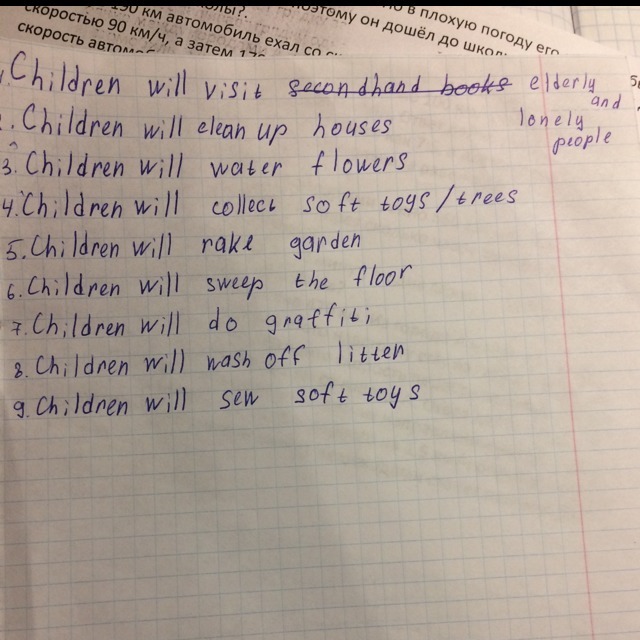 150 км автомобиль ехал со
скоростью 90 км/ч, а затем
скорость
в плохую погоду его
поэтому он дошёл до школы
1. Children will visit secondhand books elderly and lonely people
2. Children will clean up houses
3. Children will water flowers
4. Children will collect soft toys/trees
5. Children will rake garden
6. Children will sweep the floor
7. Children will do graffiti
8. Children will wash off litter
9. Children will sew soft toys